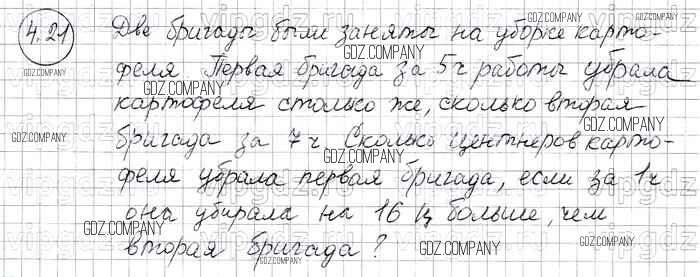 4.21 Две бригады были заняты на уборке карто-
феля Первая бригада за 5 ч работы убрала
картофеля столько же, сколько вторая
бригада за 7 ч Сколько центнеров карто-
феля убрала первая бригада, если за 1 ч
она убирала на 16 ц больше, чем
вторая бригада?
GDZ.COMPANY
GDZ.COMPANY
GDZ.COMPANY
GDZ.COMPANY
GDZ.COMPANY
GDZ.COMPANY
GDZ.COMPANY
GDZ.COMPANY
GDZ.COMPANY
GDZ.COMPANY
GDZ.COMPANY
GDZ.COMPANY
GDZ.COMPANY